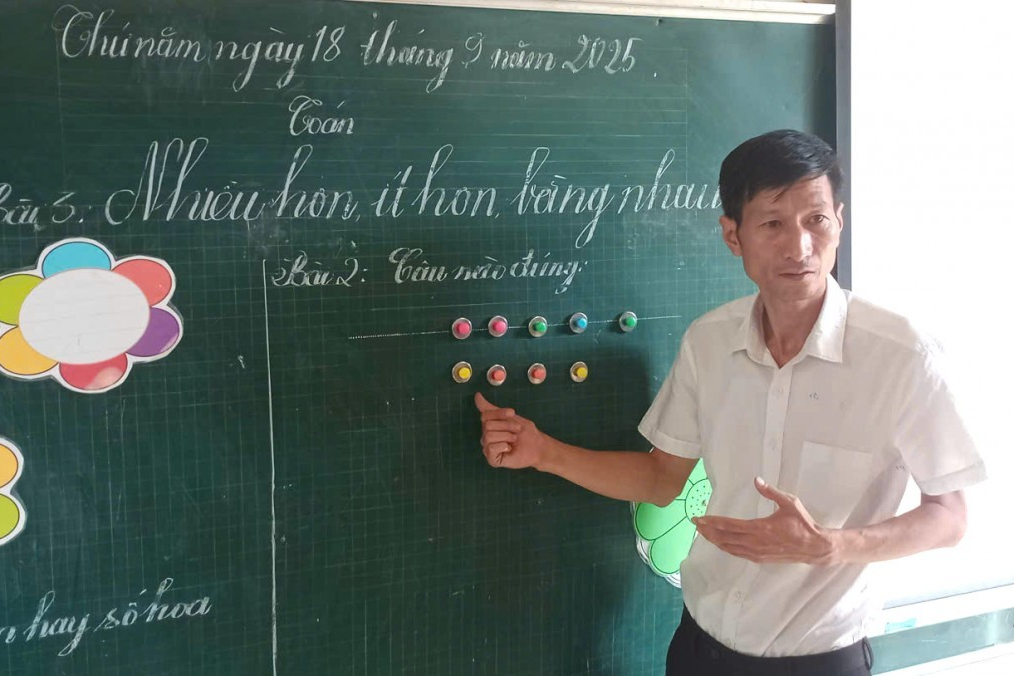 Thứ năm ngày 18 tháng 9 năm 2025
Toán
Bài 3: Nhiều hơn, ít hơn, bằng nhau
Bài 2: Câu nào đúng:
hay số hoa